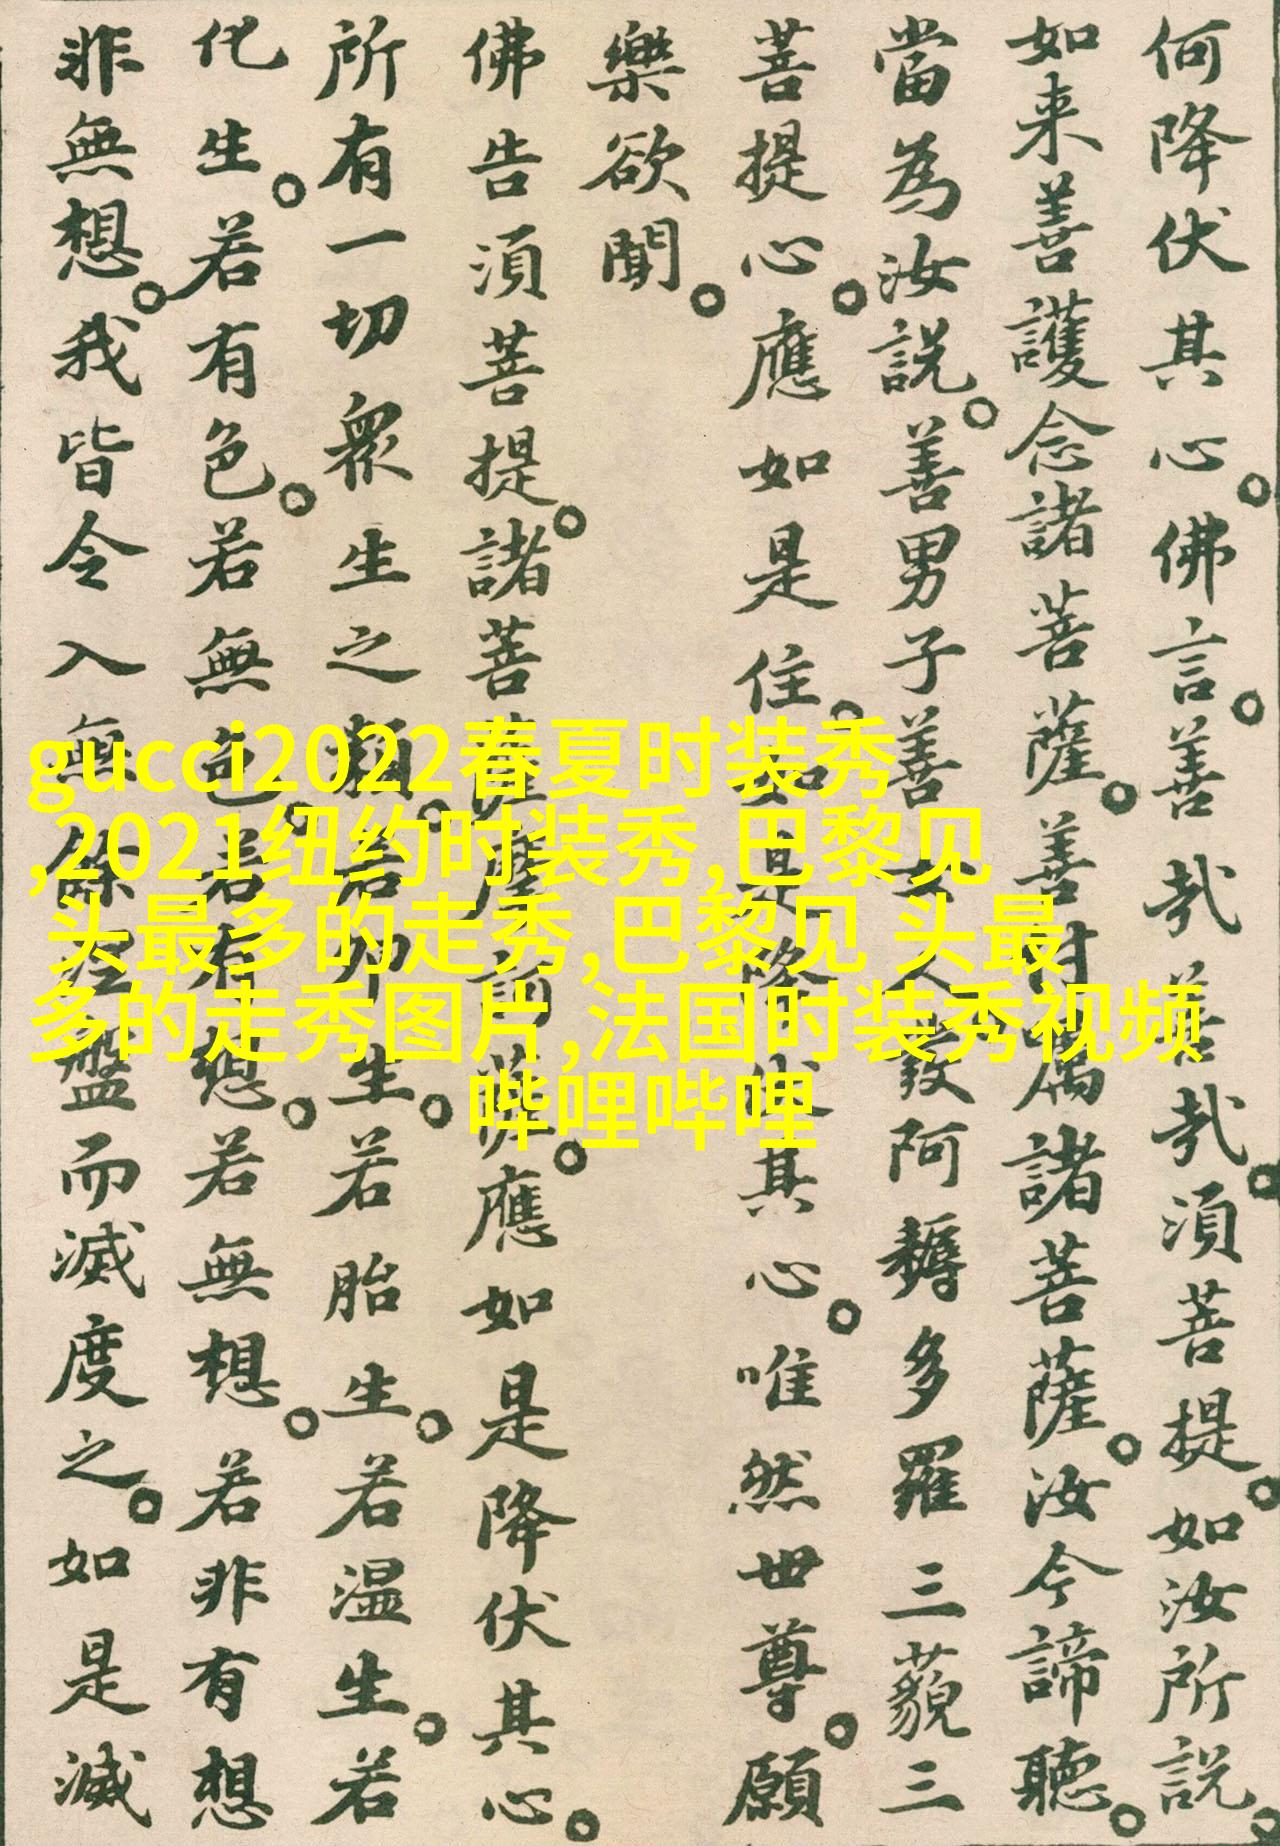 何降伏其心。佛言。善哉善哉。須菩提。如汝所説。
如来善護念諸菩薩。善付属諸菩薩。汝今諦聽。
當為汝説。善男子善女人發阿耨多羅三藐三
菩提心。應如是住。如是降伏其心。唯然世尊。願
樂欲聞。
佛告須菩提。諸菩薩摩訶薩。應如是降伏其心。
所有一切衆生之類。若卵生。若胎生。若温生。若
化生。若有色。若無色。若有想。若無想。若非有想
非無想。我皆令入無餘涅盤而滅度之。如是滅
gucci2022春夏时装秀
,2021纽约时装秀,巴黎见
头最多的走秀,巴黎见 头最
多的走秀图片,法国时装秀视频
哔哩哔哩